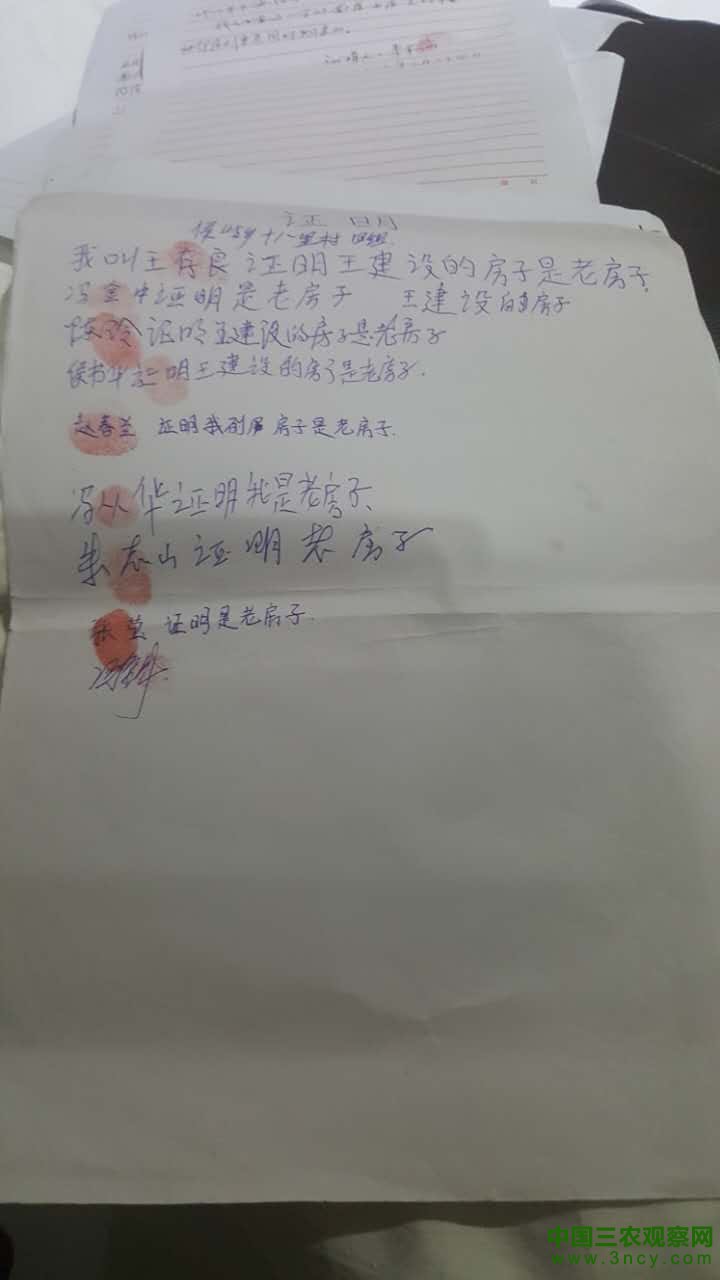 证明
十八里村 四组
我叫王存良证明王建设的房子是老房子.
冯金中证明是老房子 王建设的房子
陈玲证明王建设的房子是老房子
侯书华证明王建设的房子是老房子.
赵春兰 证明我 房子是老房子.
冯从华证明我是老房子.
朱志山证明老房子
张莹 证明是老房子.
中国三农观察网
www.3ncy.com